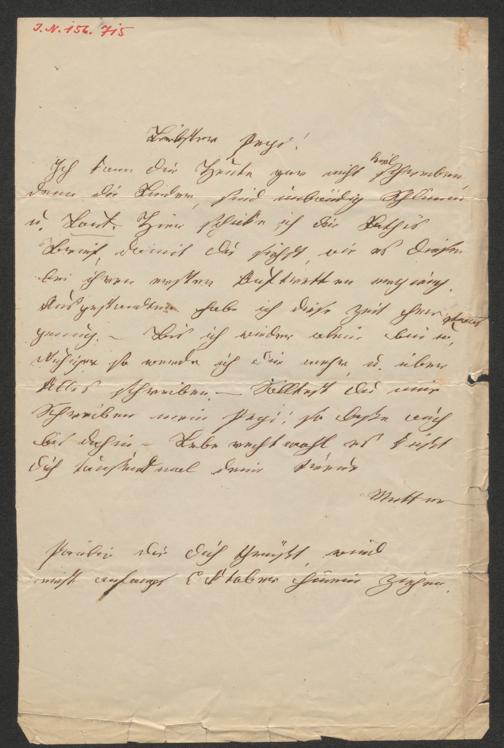 I.N. 156.715
Liebster Pepi!
Ich kann dir Heute gar nicht viel schreiben,
denn die Kinder, sind unbändig schlimm
u. Laut. Hier schicke ich dir
Brief, damit du siehst, wie es dieser
bei ihren ersten Auftretten erging.
Ausgestanden hab ich diese Zeit her
genug. – Bis ich wieder allein bin u.
Ruhiger so werde ich dir mehr, u. über
Alles schreiben. – Solltest du mir
Schreiben mein Pepi! so
bis dahin – Lebe recht wohl es küßt
dich tausendmal deine treue
Mutter
die dich Grüßt, wird
erst anfangs October hinein ziehen.